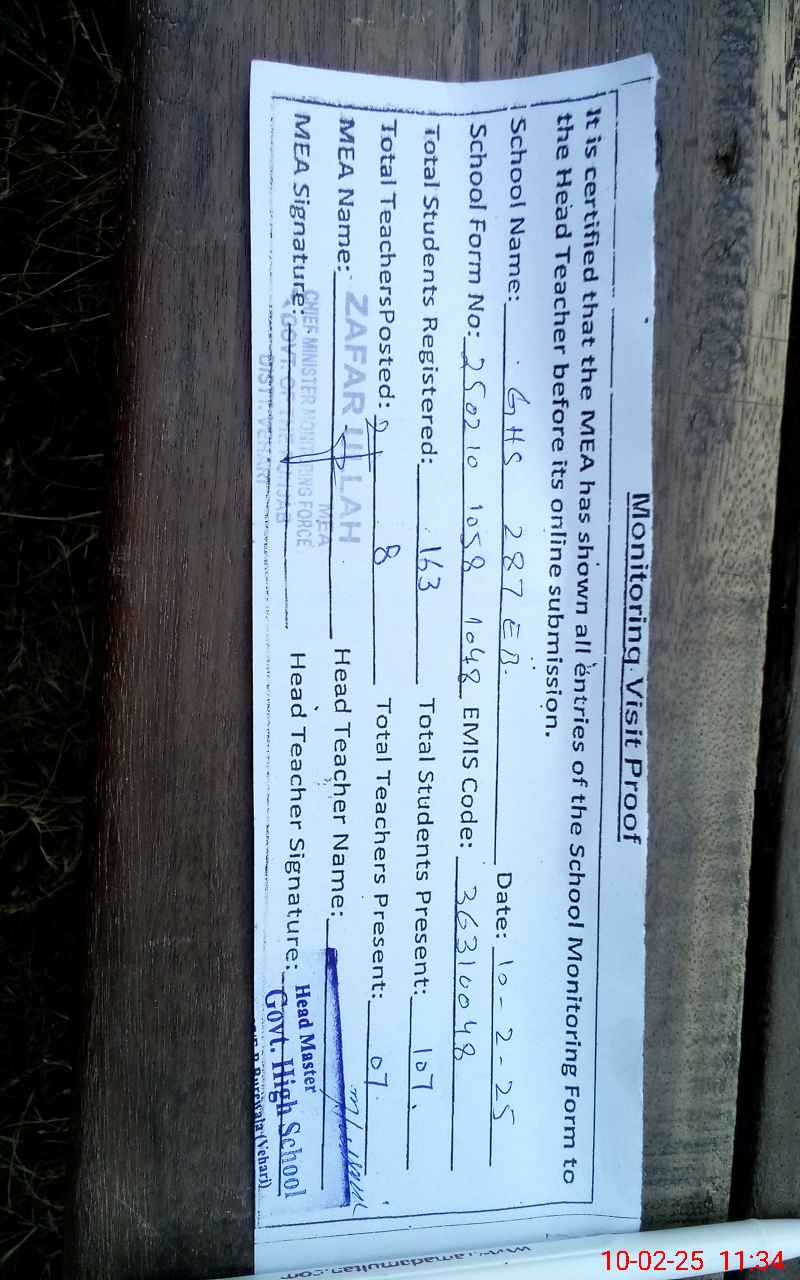 Monitoring Visit Proof
It is certified that the MEA has shown all entries of the School Monitoring Form to
the Head Teacher before its online submission.
School Name: GHS 287 EB. Date: 10-2-25
School Form No: 250210 1058 1048 EMIS Code: 36310048
Total Students Registered: 163 Total Students Present: 107.
Total TeachersPosted: 8 Total Teachers Present: 07.
MEA Name: ZAFAR ULLAH Head Teacher Name:
MEA
MEA Signature: Head Teacher Signature:
CHIEF MINISTER MONITORING FORCE
GOVT. OF THE PUNJAB
DISTT. VEHARI
Head Master
Govt. High School
Burewala (Vehari)
10-02-25 11:34